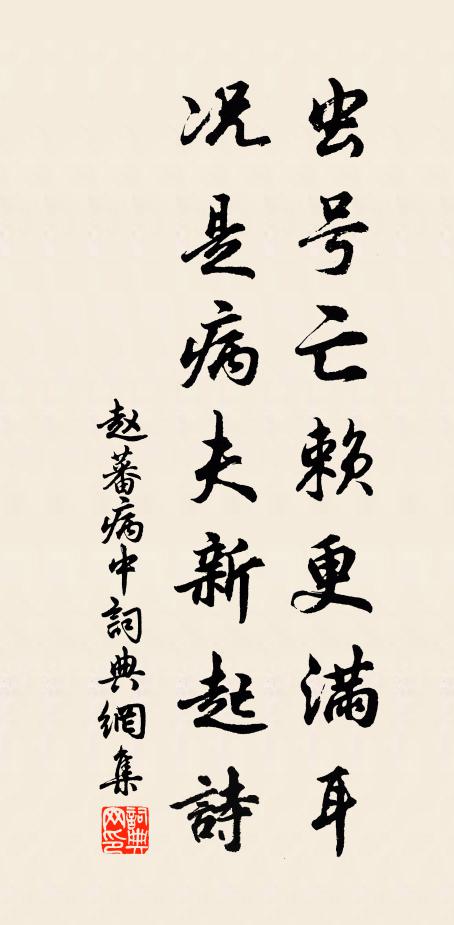 虫号亡赖更满耳
况是病夫新起詩
赵蕃病中詞典網集
詞典网印